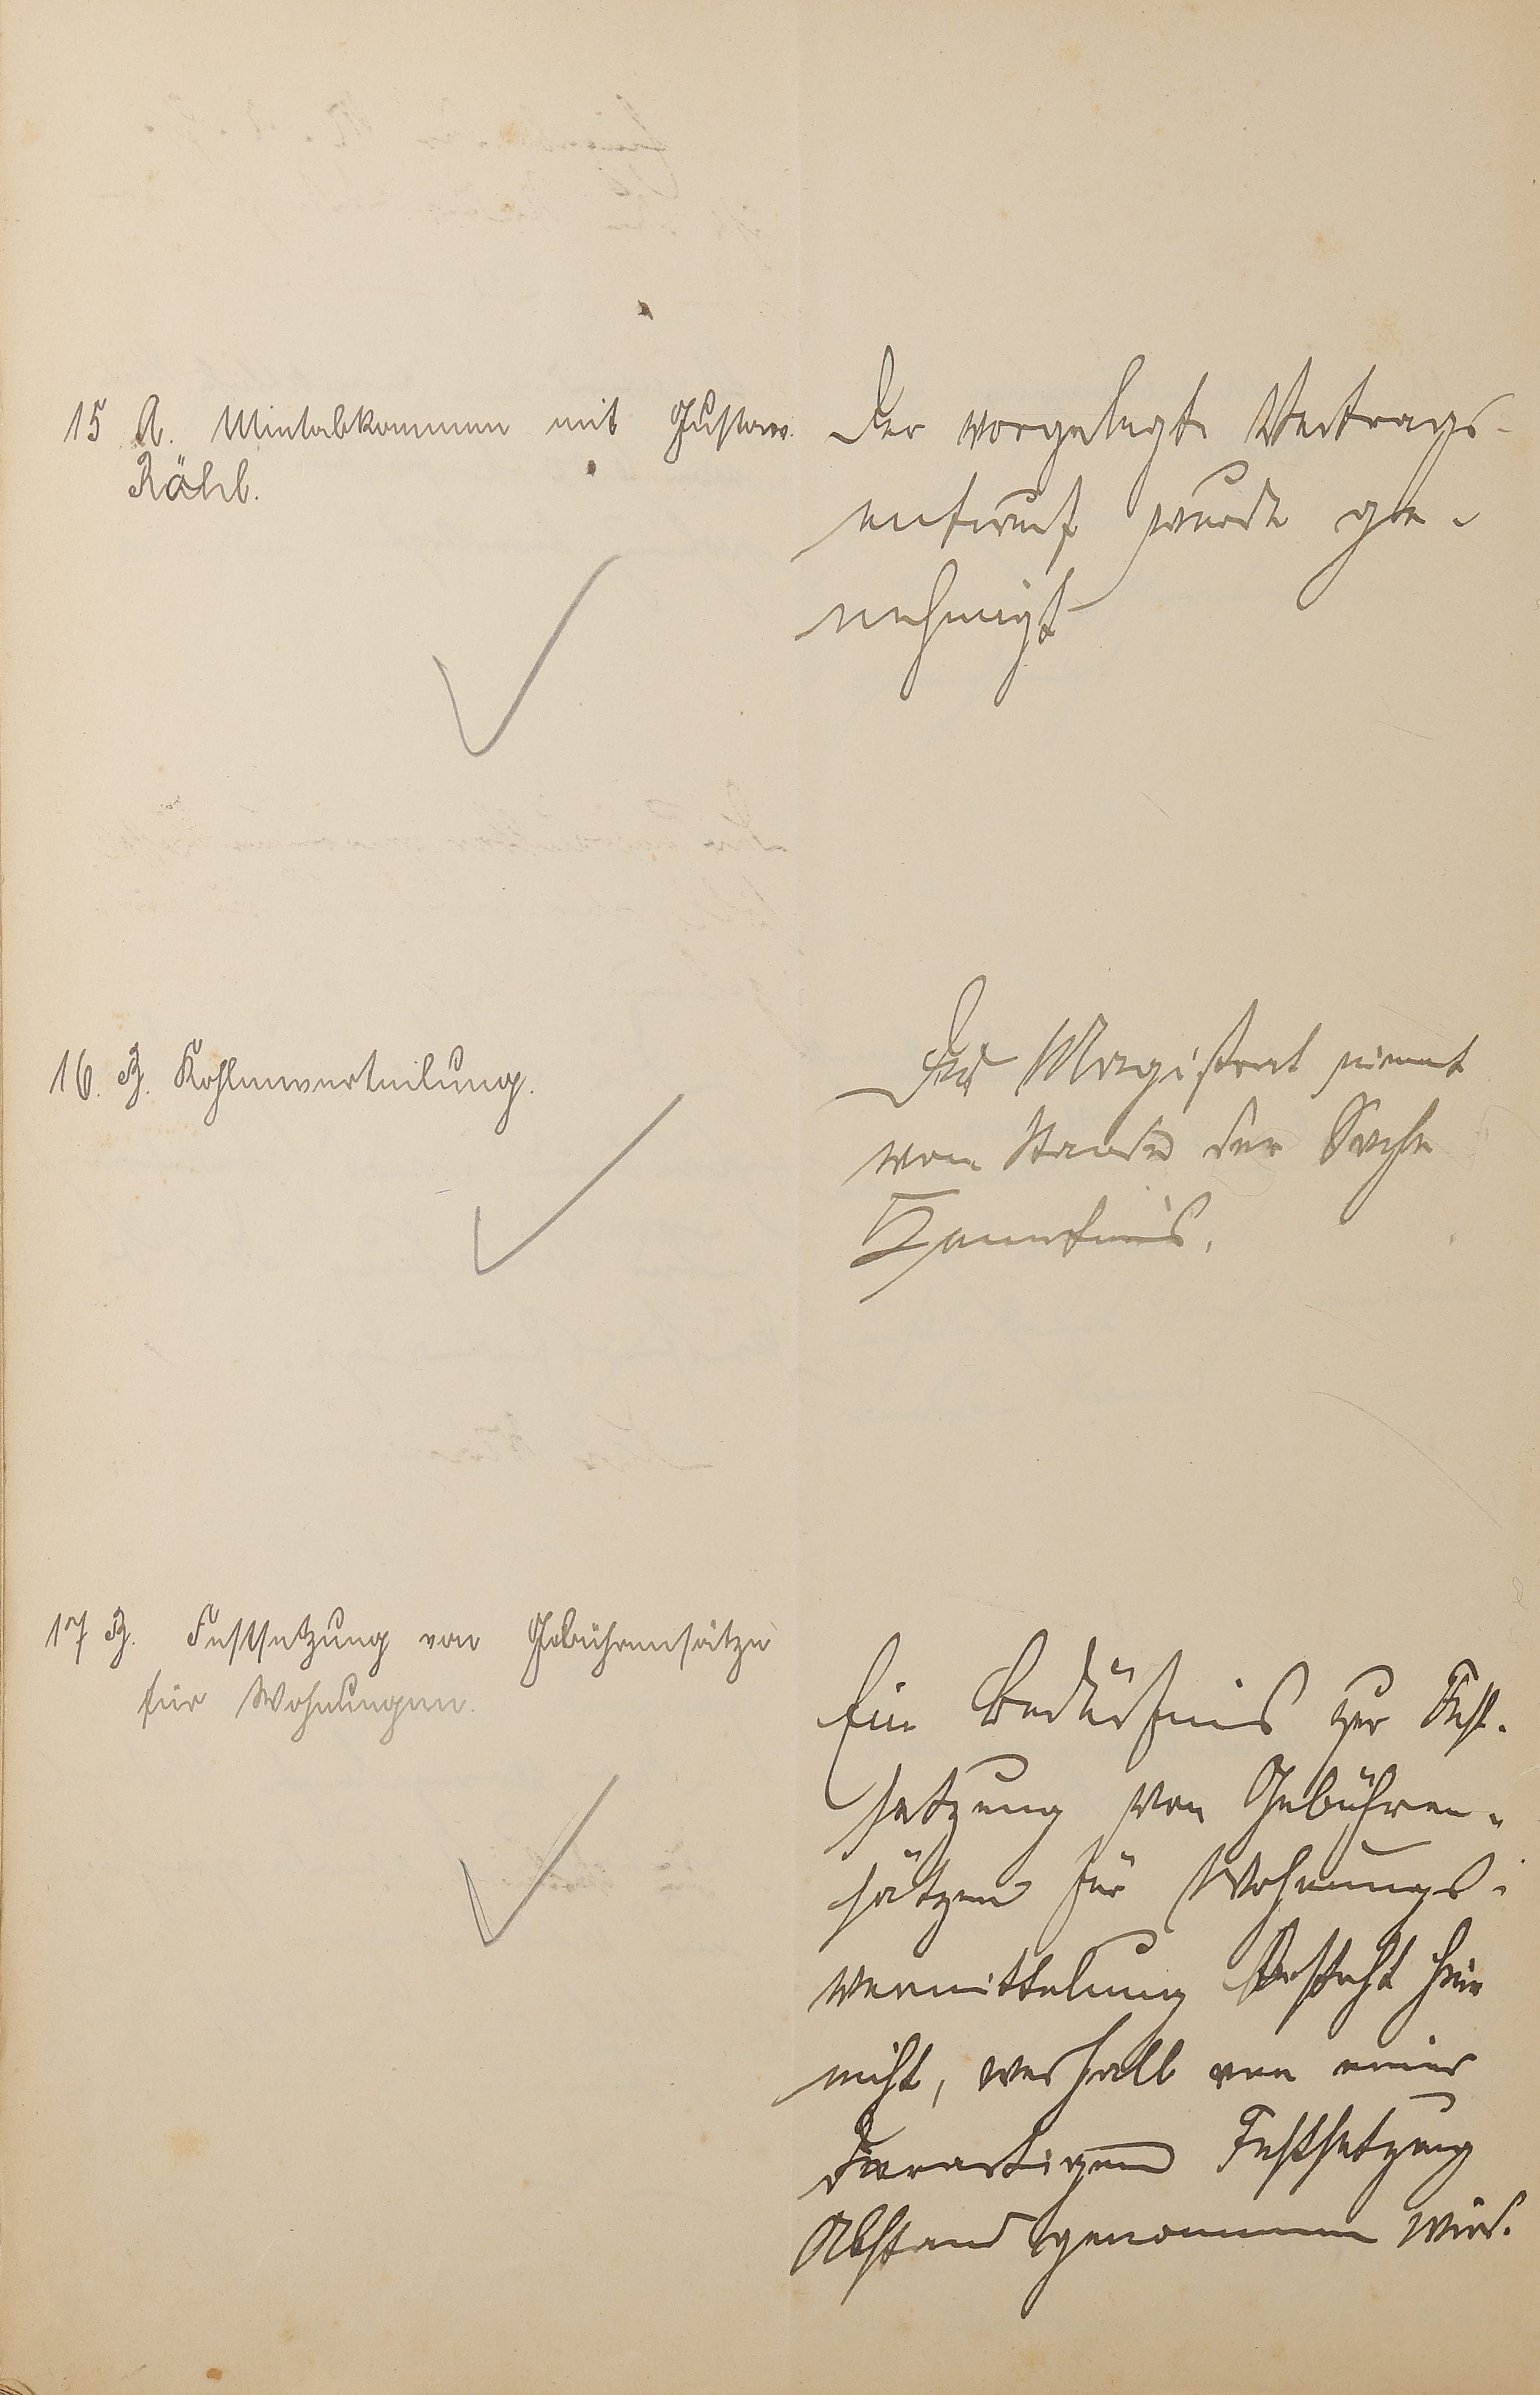 15 A. Mietabkommen mit Gustav
Röhl.
Der vorgelegte Vertrags-
entwurf wurde ge-
nehmigt
16. B. Kohlenverteilung.
Der Magistrat nimmt
vom Stande der Sache
Kenntnis.
17 B. Festsetzung von Gebührensätze
für Wohnungen.
Ein Bedürfnis zur Fest-
setzung von Gebühren-
sätzen für Wohnungs-
vermittelung besteht hier
nicht, weshalb von einer
derartigen Festsetzung
Abstand genommen wird.